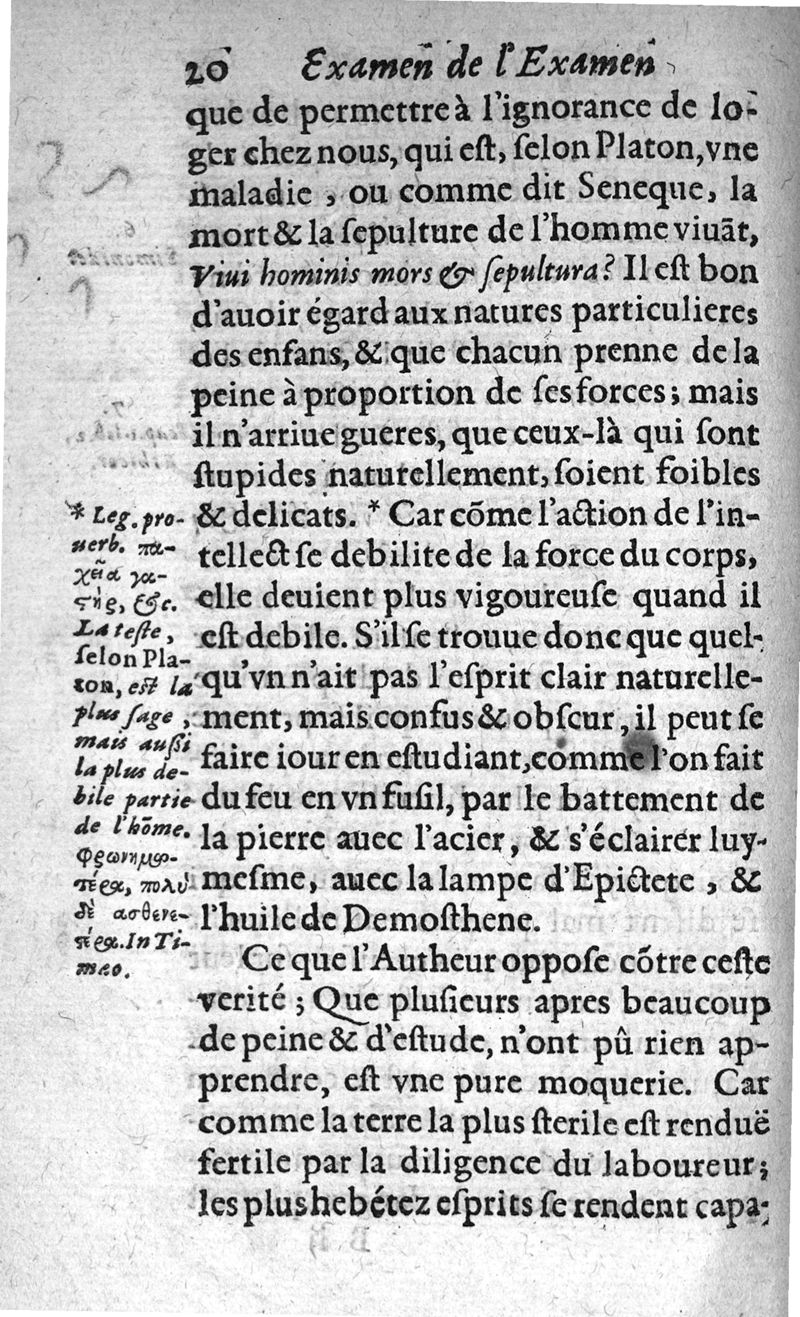 20 Examen de l'Examen
que de permettre à l'ignorance de lo-
ger chez nous, qui eſt, ſelon Platon, vne
maladie, ou comme dit Seneque, la
mort & la ſepulture de l'homme viuāt,
Viui hominis mors & ſepultura? Il eſt bon
d'auoir égard aux natures particulieres
des enfans, & que chacun prenne de la
peine à proportion de ſes forces; mais
il n'arriue gueres, que ceux-là qui ſont
ſtupides naturellement, ſoient foibles
& delicats. * Car cōme l'action de l'in-
tellect ſe debilite de la force du corps,
elle deuient plus vigoureuſe quand il
eſt debile. S'il ſe trouue donc que quel-
qu'vn n'ait pas l'eſprit clair naturelle-
ment, mais confus & obſcur, il peut ſe
faire iour en eſtudiant, comme l'on fait
du feu en vn fuſil, par le battement de
la pierre auec l'acier, & s'éclairer luy-
meſme, auec la lampe d'Epictete, &
l'huile de Demoſthene.
Ce que l'Autheur oppoſe cōtre ceſte
verité; Que pluſieurs apres beaucoup
de peine & d'eſtude, n'ont pû rien ap-
prendre, eſt vne pure moquerie. Car
comme la terre la plus ſterile eſt renduë
fertile par la diligence du laboureur;
les plus hebétez eſprits ſe rendent capa-
* Leg. pro-
uerb. πα-
χεῖα γα-
ςὴρ, &c.
La teſte,
ſelon Pla-
ton, eſt la
plus ſage,
mais auſſi
la plus de-
bile partie
de l'hōme.
φρονημω-
τέρα, πολὺ
δὲ ἀσθενε-
τέρα. In Ti-
mæo.